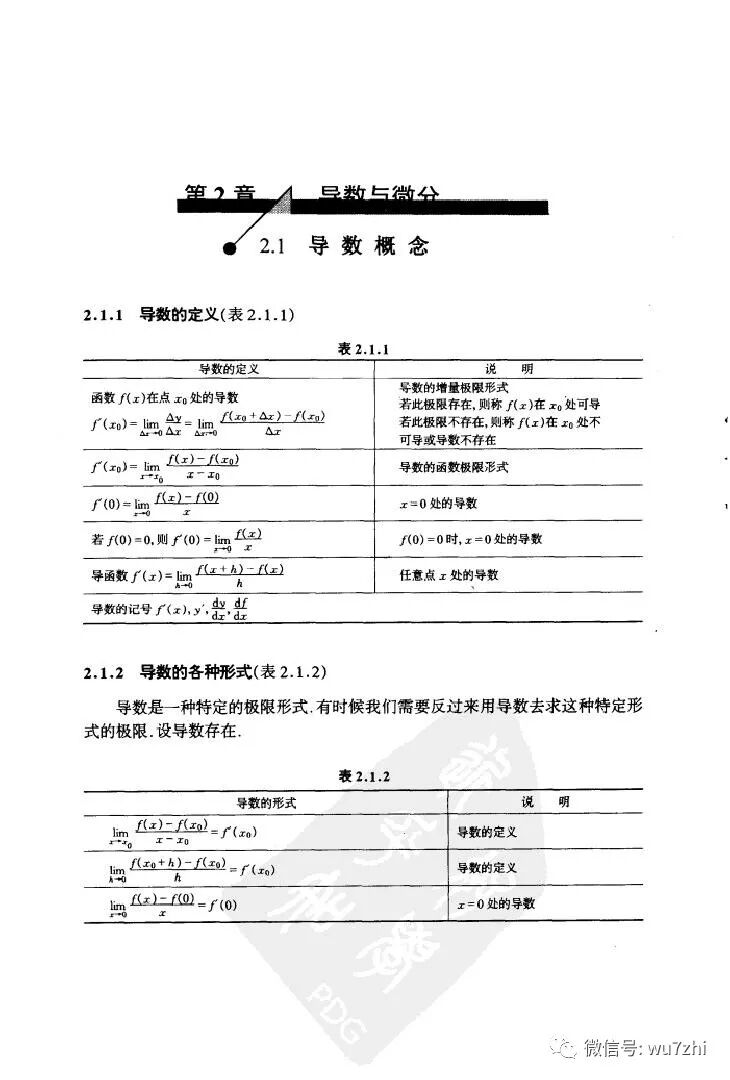 第 2 章 导数与微分
2.1 导 数 概 念
2.1.1 导数的定义(表 2.1.1)
表 2.1.1
导数的定义 说 明
函数 f(x)在点 x₀ 处的导数
f′(x₀) = lim_{Δx→0} Δy/Δx = lim_{Δx→0} (f(x₀+Δx)-f(x₀))/Δx
导数的增量极限形式
若此极限存在,则称 f(x)在 x₀ 处可导
若此极限不存在,则称 f(x)在 x₀ 处不
可导或导数不存在
f′(x₀) = lim_{x→x₀} (f(x)-f(x₀))/(x-x₀) 导数的函数极限形式
f′(0) = lim_{x→0} (f(x)-f(0))/x x=0 处的导数
若 f(0)=0,则 f′(0) = lim_{x→0} f(x)/x f(0)=0 时, x=0 处的导数
导函数 f′(x) = lim_{h→0} (f(x+h)-f(x))/h 任意点 x 处的导数
导数的记号 f′(x), y′, dy/dx, df/dx
2.1.2 导数的各种形式(表 2.1.2)
导数是一种特定的极限形式.有时候我们需要反过来用导数去求这种特定形
式的极限.设导数存在.
表 2.1.2
导数的形式 说 明
lim_{x→x₀} (f(x)-f(x₀))/(x-x₀) = f′(x₀) 导数的定义
lim_{h→0} (f(x₀+h)-f(x₀))/h = f′(x₀) 导数的定义
lim_{x→0} (f(x)-f(0))/x = f′(0) x=0 处的导数
PDG
微信号: wu7zhi